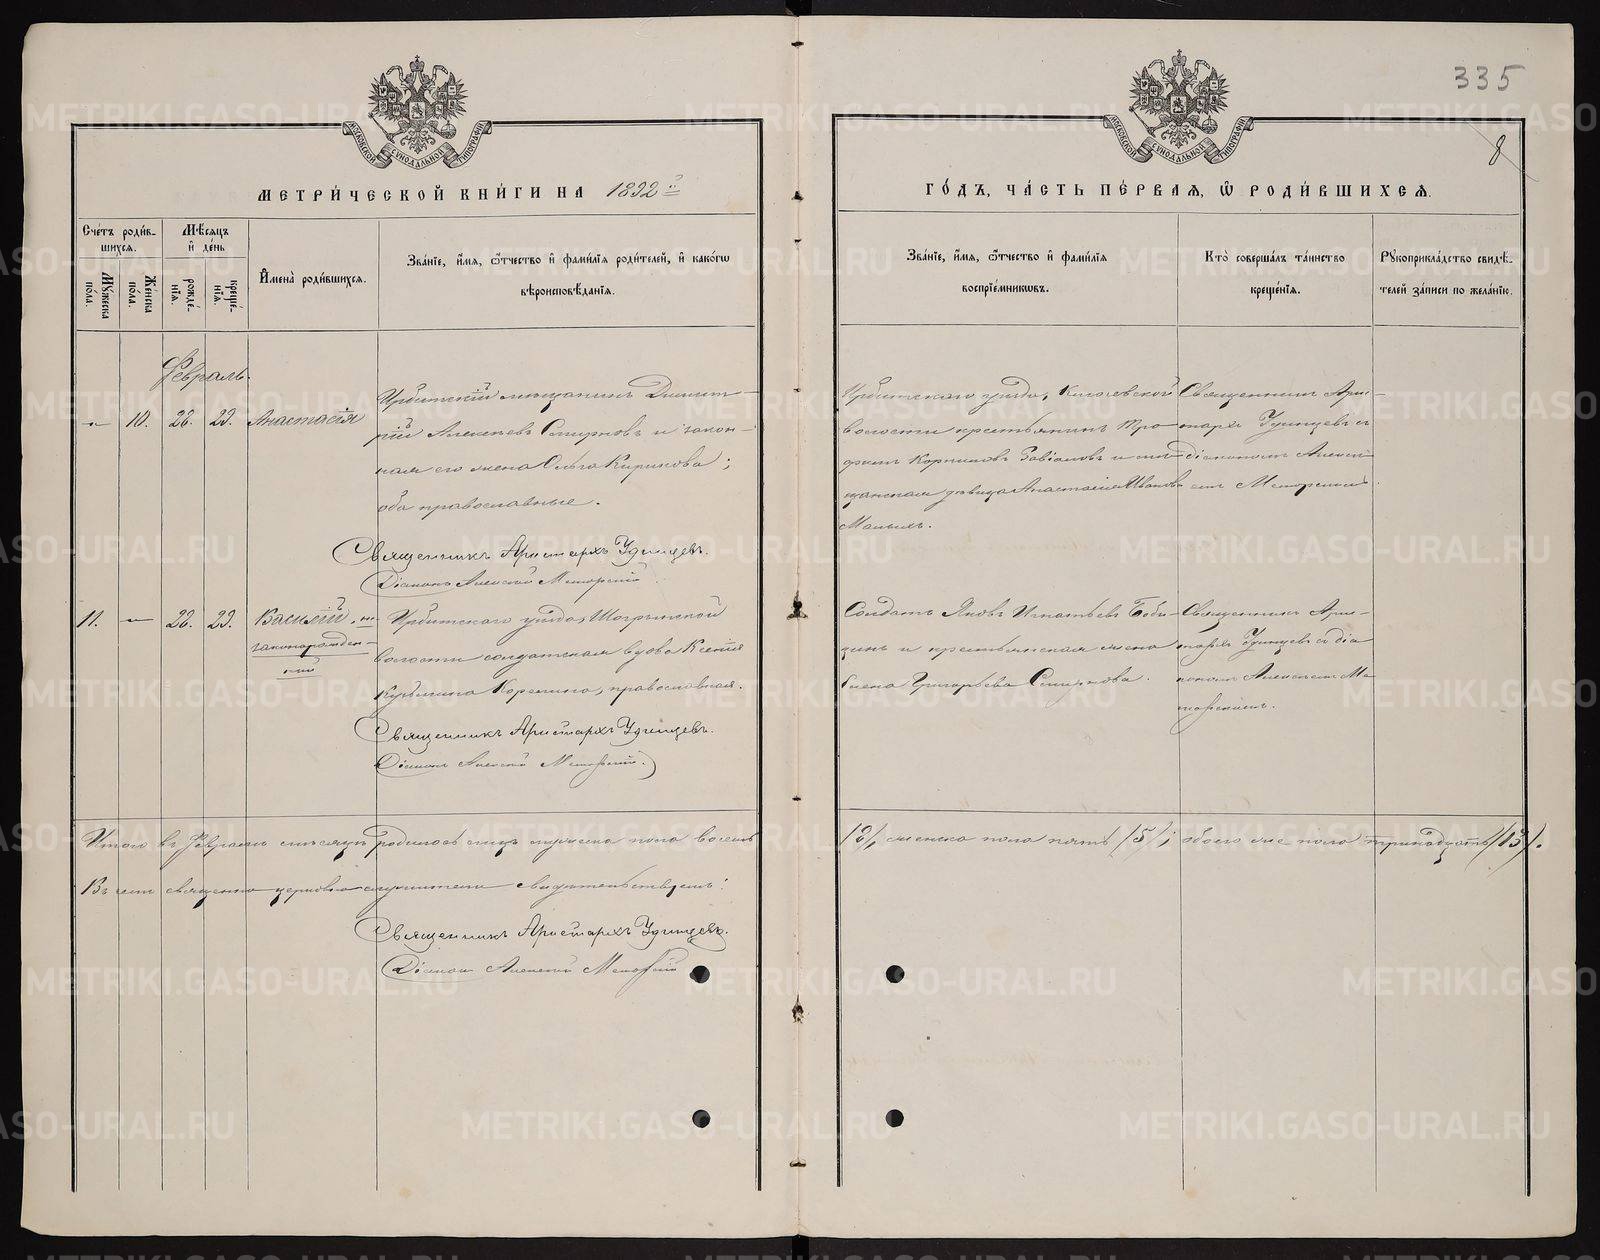 335
8
МОСКОВСКОЙ СѴНОДАЛЬНОЙ ТИПОГРАФІИ
МОСКОВСКОЙ СѴНОДАЛЬНОЙ ТИПОГРАФІИ
МЕТРИ́ЧЕСКОЙ КНИ́ГИ НА 1892
ГО́ДЪ, ЧА́СТЬ ПЕ́РВАЯ, Ѡ РОДИ́ВШИХСЯ.
Сче́тъ роди́в-
шихся.
Мꙋжеска по́ла.
Же́нска по́ла.
Мѣ́сяцъ и де́нь
рожде́-нія.
креще́-нія.
И́мена̀ роди́вшихся.
Зва́ніе, и́мя, ѻ́тчество и фами́лія роди́телей, и како́гѡ
вѣроисповѣ́данія.
Зва́ніе, и́мя, ѻ́тчество и фами́лія
воспріе́мниковъ.
Кто̀ соверша́лъ та́инство
креще́нія.
Рꙋкоприкла́дство свидѣ́-
телей за́писи по жела́нію.
Февраль.
10. 28. 29. Анастасія
Ирбитскій мѣщанинъ Димит-
рій Алексѣевъ Смирновъ и закон-
ная его жена Ольга Кирикова;
оба православные.
Священникъ Аристархъ Удинцевъ.
Діаконъ Алексѣй
Ирбитскаго уѣзда, Ключевской
волости крестьянинъ Тро-
фимъ Корниловъ Завьяловъ и мѣ-
щанская дѣвица Анастасія Иванова
Малыхъ.
Священникъ Арис-
тархъ Удинцевъ съ
діакономъ Алексѣ-
емъ
11. — 28. 29. Василій, не-
законорожден-
ный
Ирбитскаго уѣзда, Шогринской
волости солдатская вдова Ксенія
Корелина, православная.
Священникъ Аристархъ Удинцевъ.
Діаконъ Алексѣй
Солдатъ Яковъ Игнатьевъ Боби-
и крестьянская жена
Елена Григорьева Смирнова.
Священникъ Арис-
тархъ Удинцевъ съ діа-
кономъ Алексѣемъ
Итого въ Февралѣ мѣсяцѣ родилось лицъ мужеска пола восемь
/8/, женска пола пять /5/; обоего же пола тринадцать /13/.
Въ чемъ священно-церковно-служители свидѣтельствуемъ:
Священникъ Аристархъ Удинцевъ.
Діаконъ Алексѣй
METRIKI.GASO-URAL.RU